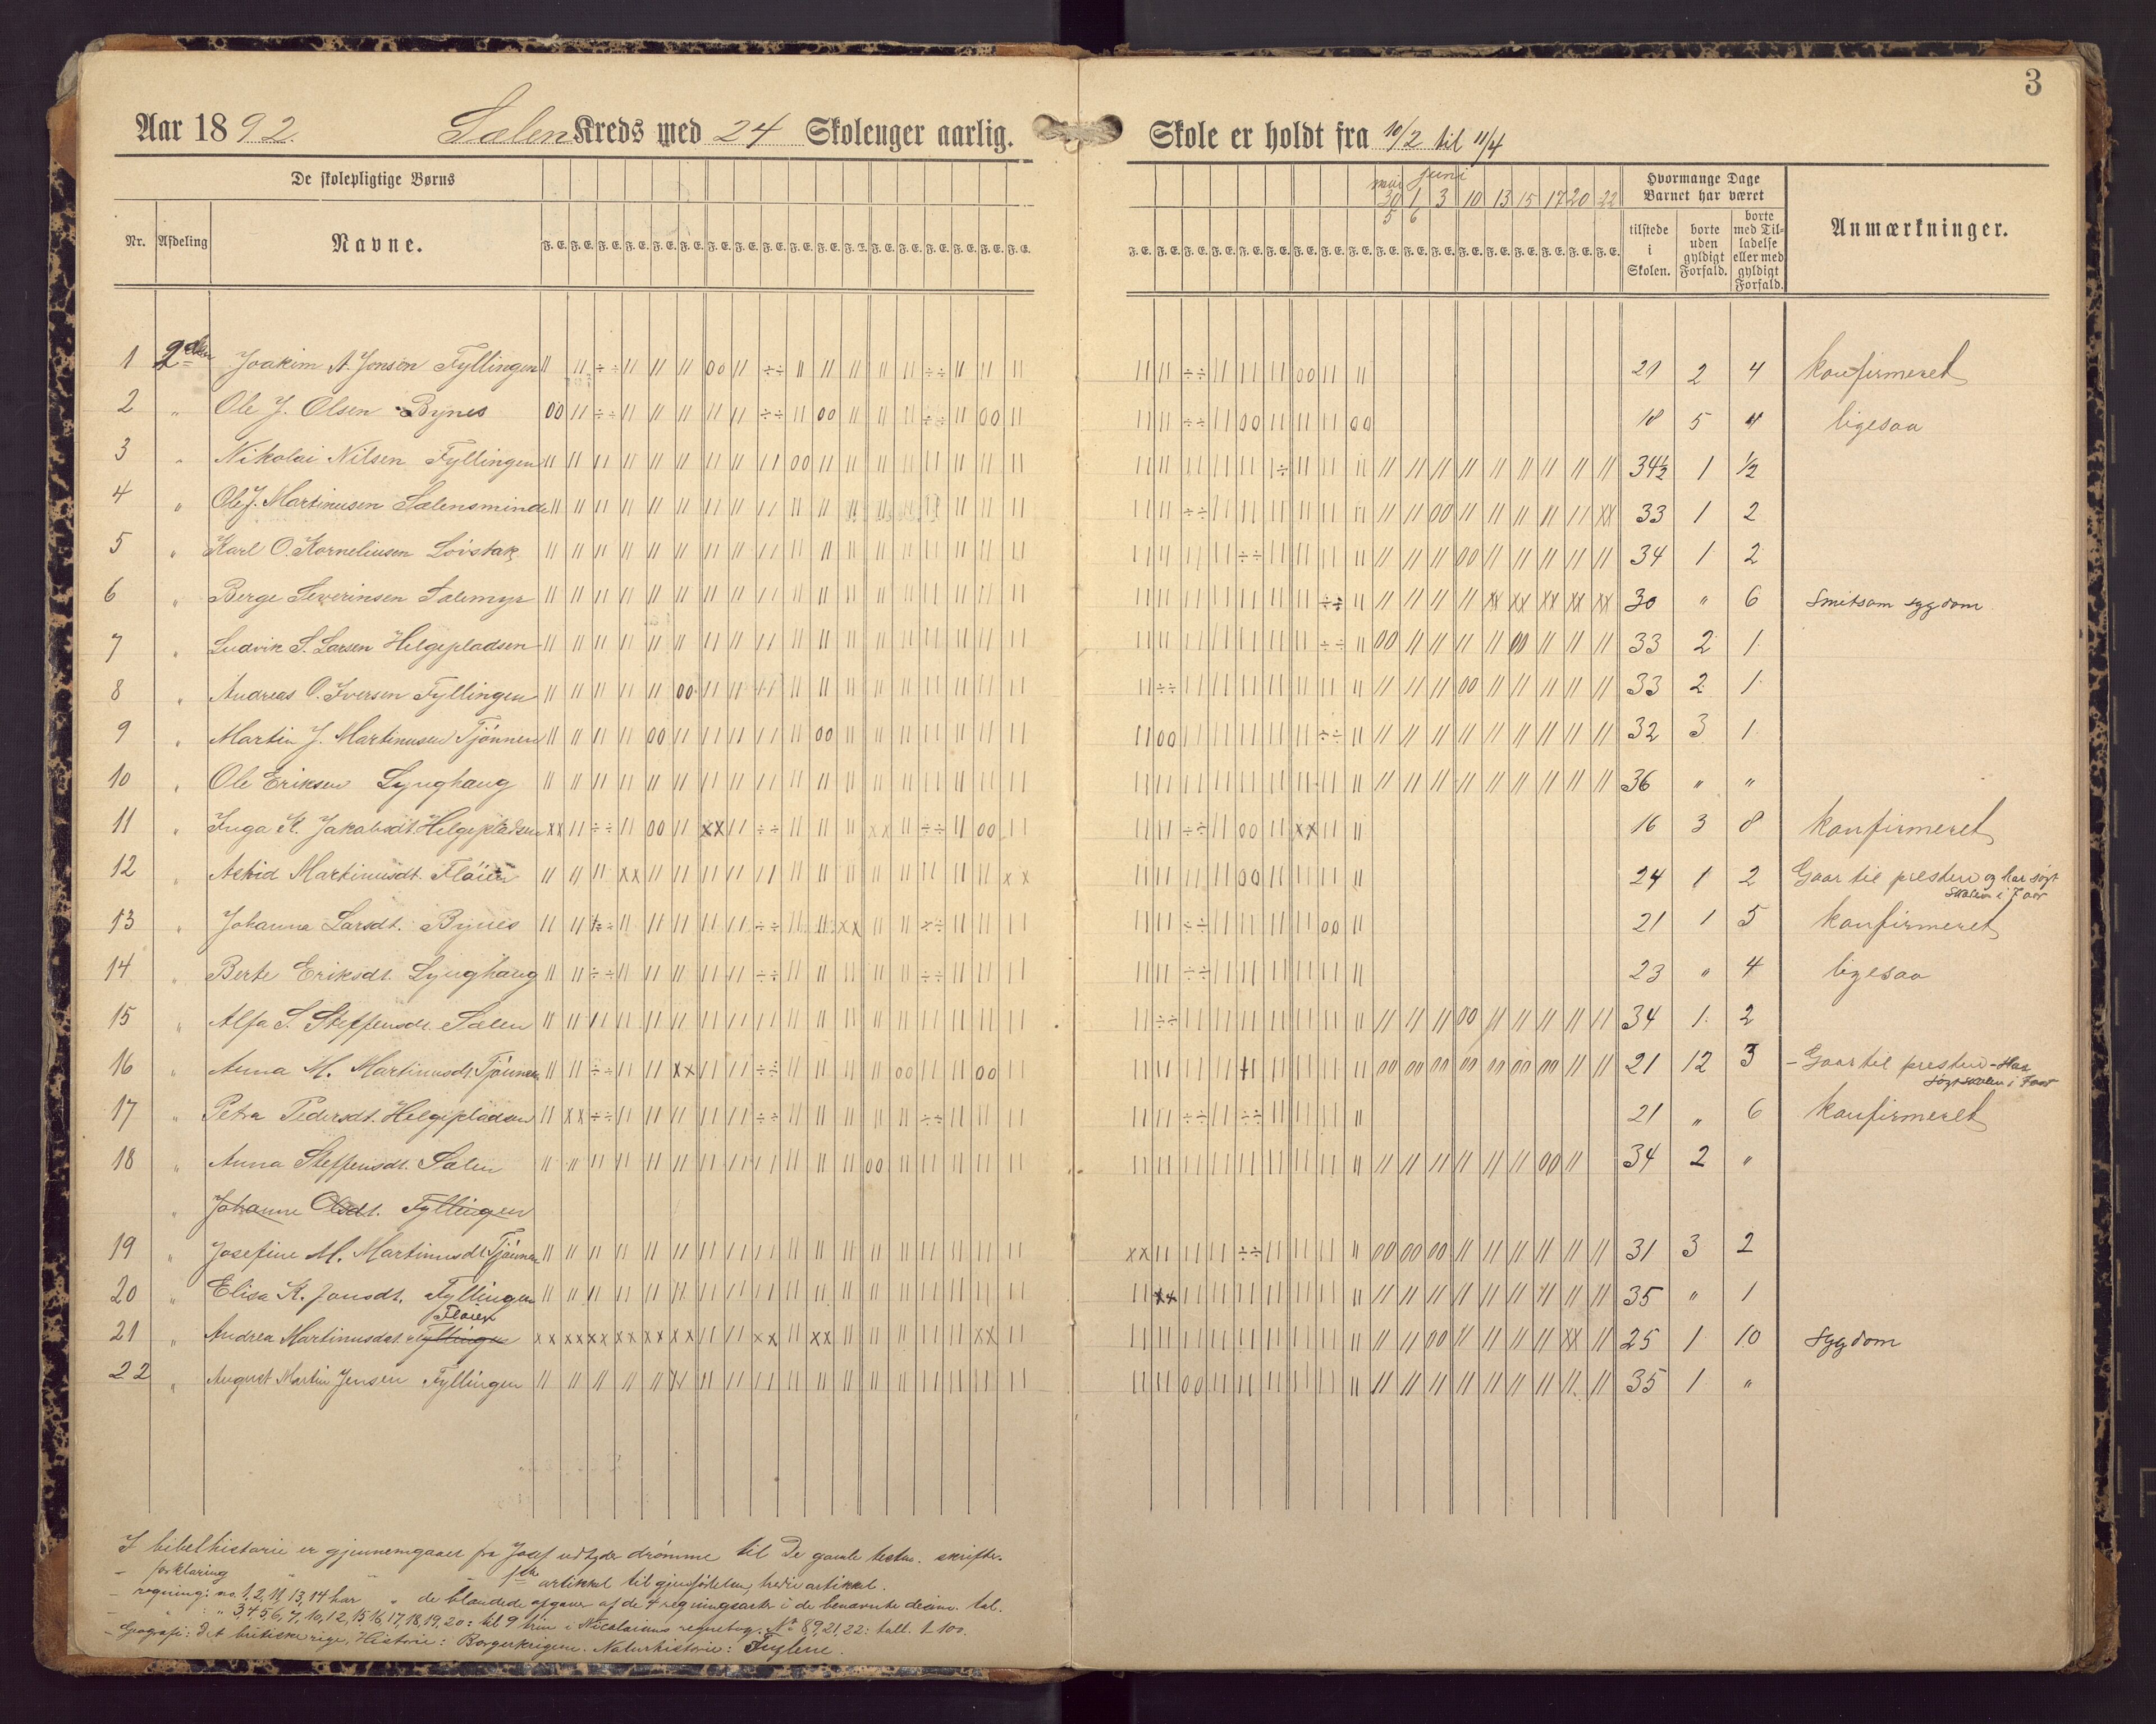 3
Aar 1892. Sælen Kreds med 24 Skoleuger aarlig. Skole er holdt fra 10/2 til 11/4
De skolepligtige Børns
mai juni
30 1 3 10 13 15 17 20 22
5 6
Hvormange Dage Barnet har været
Nr. Afdeling Navne. F. E. tilstede i Skolen. borte uden gyldigt Forfald. borte med Tilladelse eller med gyldigt Forfald. Anmærkninger.
1 2den Joakim A. Jonson Fyllingen 21 2 4 konfirmeret
2 " Ole J. Olsen Bynes 18 5 4 ligesaa
3 " Nikolai Nilsen Fyllingen 34½ 1 ½
4 " Ole J. Martinusen Sælensminde 33 1 2
5 " Karl O. Korneliusen Løvstak 34 1 2
6 " Berge Severinsen Sælemyr 30 " 6 Smitsom sygdom
7 " Ludvik S. Larsen Helgepladsen 33 2 1
8 " Andreas O. Iversen Fyllingen 33 2 1
9 " Martin J. Martinusen Tjønnen 32 3 1
10 " Ole Eriksen Lynghaug 36 " "
11 " Inga K. Jakobsdt. Helgepladsen 16 3 8 konfirmeret
12 " Astrid Martinusdt. Fløien 24 1 2 Gaar til presten og har søgt
skolen i 7 aar
13 " Johanna Larsdt. Bynes 21 1 5 konfirmeret
14 " Berte Eriksdt. Lynghaug 23 " 4 ligesaa
15 " Alfa S. Steffensdt. Sælen 34 1 2
16 " Anna M. Martinusdt. Tjønnen 21 12 3 - Gaar til presten - Har
søgt skolen i 7 aar
17 " Petra Pedersdt. Helgepladsen 21 " 6 konfirmeret
18 " Anna Steffensdt. Sælen 34 2 "
" Johanne Olsdt. Fyllingen
19 " Josefine M. Martinusdt. Tjønnen 31 3 2
20 " Elisa K. Jonsdt. Fyllingen 35 " 1
Fløien
21 " Andrea Martinusdat. Fyllingen 25 1 10 Sygdom
22 " August Martin Jensen Fyllingen 35 1 "
I bibelhistorie er gjennemgaaet fra Josef udtyder drømme til De gamle testm. skrifter.
- forklaring " " 1ste artikkel til gjenfødelsen, tredie artikkel.
- regning: no. 1, 2, 11, 13, 14 har " de blandede opgaver af de 4 regningsarter i de benævnte desim. tal.
- " : " 3, 4 5 6, 7, 10, 12, 15 16, 17, 18, 19, 20: til 9 trin i Nicolaisens regnebog. No 8 9, 21, 22: tall. 1-100.
- Geografi: Det britiske rige. Historie: Borgerkrigene. Naturhistorie: Fuglene.